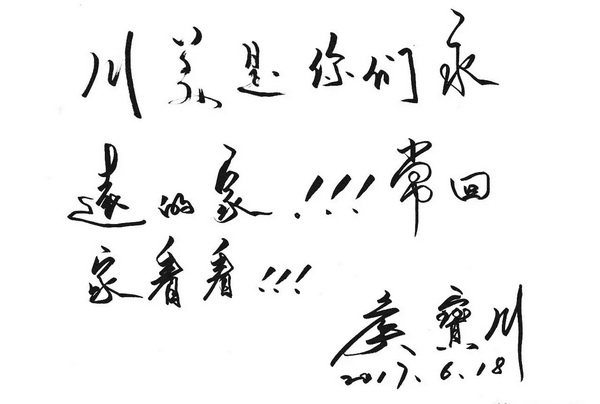 川美是你们永
遠的家!!!常回
家看看!!!
侯寶川
2017.6.18